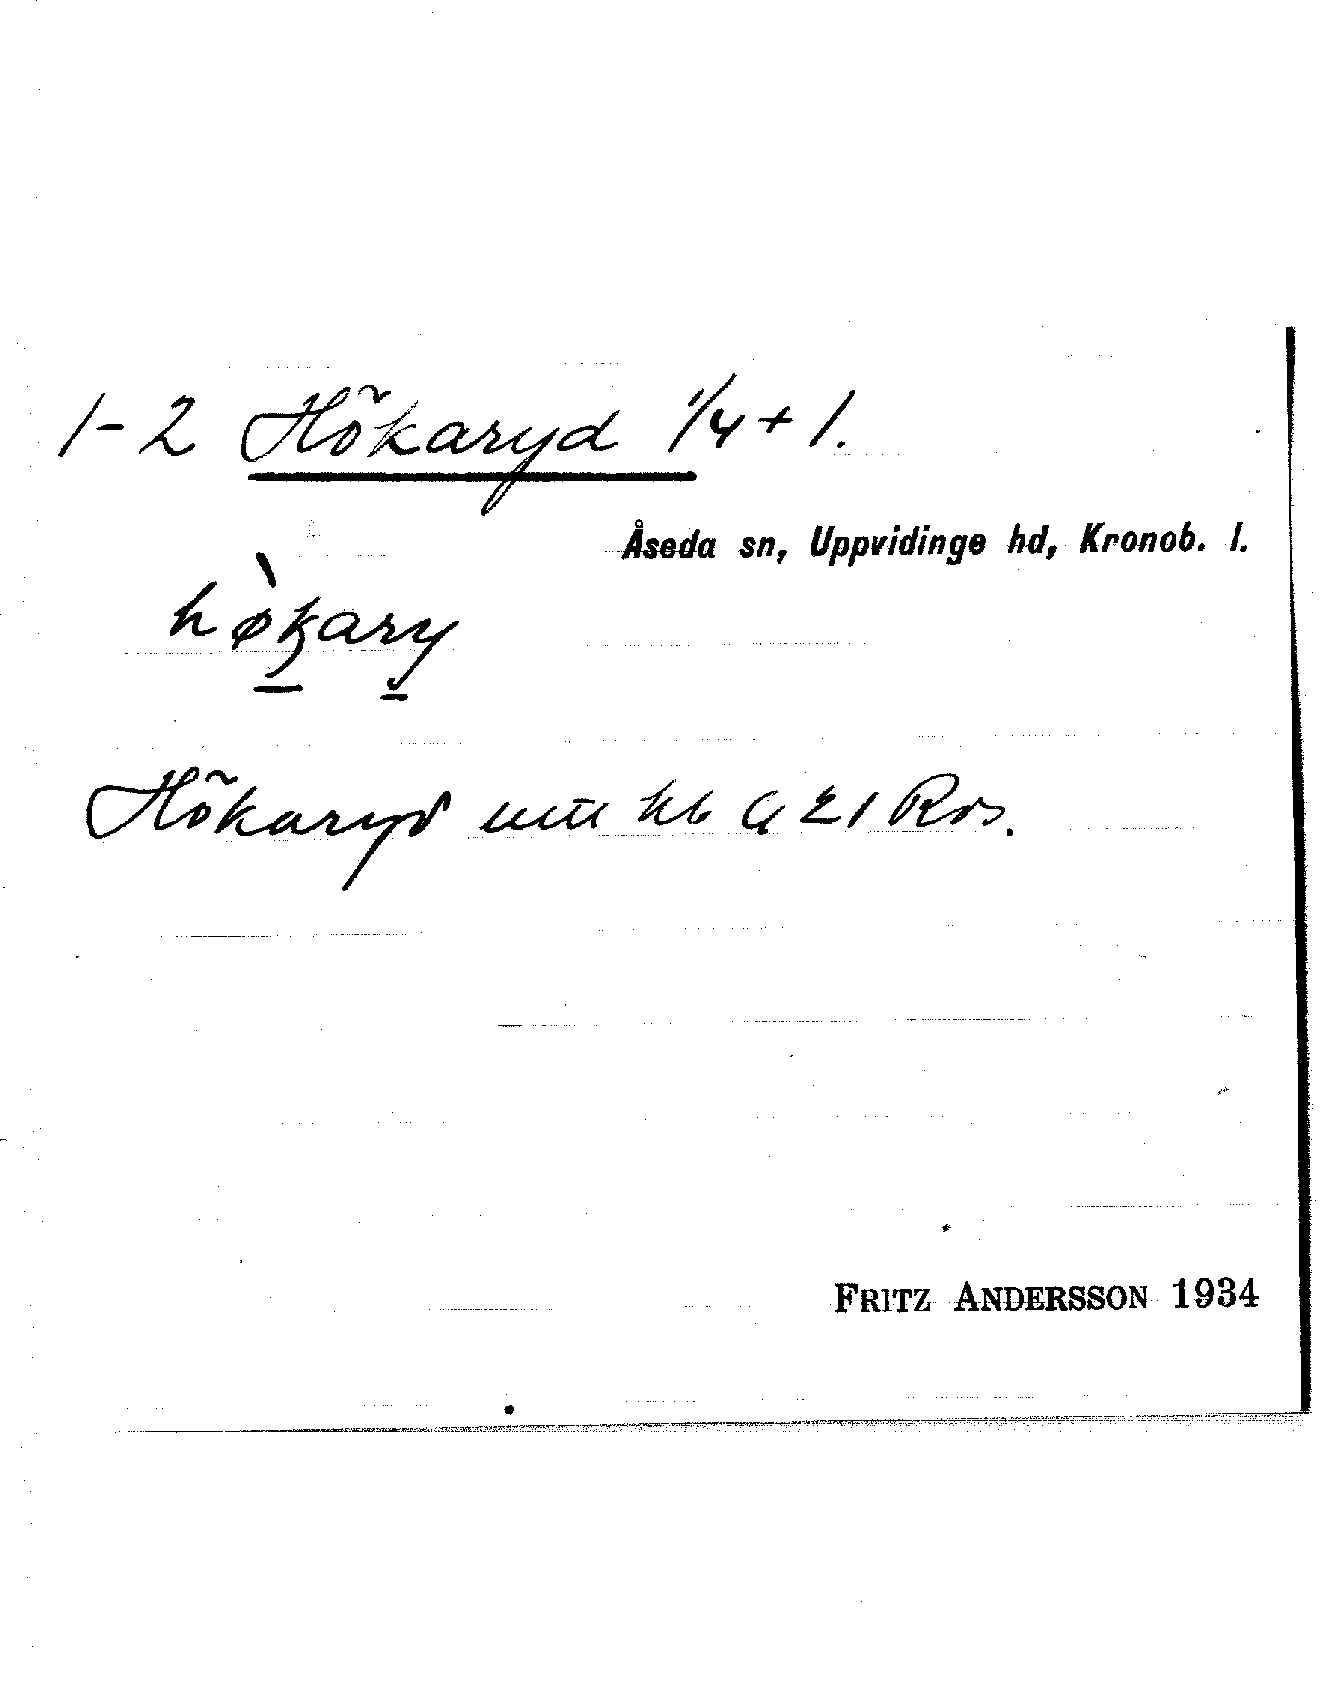 1-2 Hökaryd 1/4 + 1.
Åseda sn, Uppvidinge hd, Kronob. l.
hø̀kary
Hökaryd hb
FRITZ ANDERSSON 1934